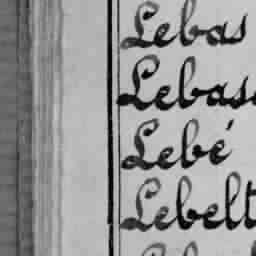 Lebas
Lebas
Lebé
Lebelt